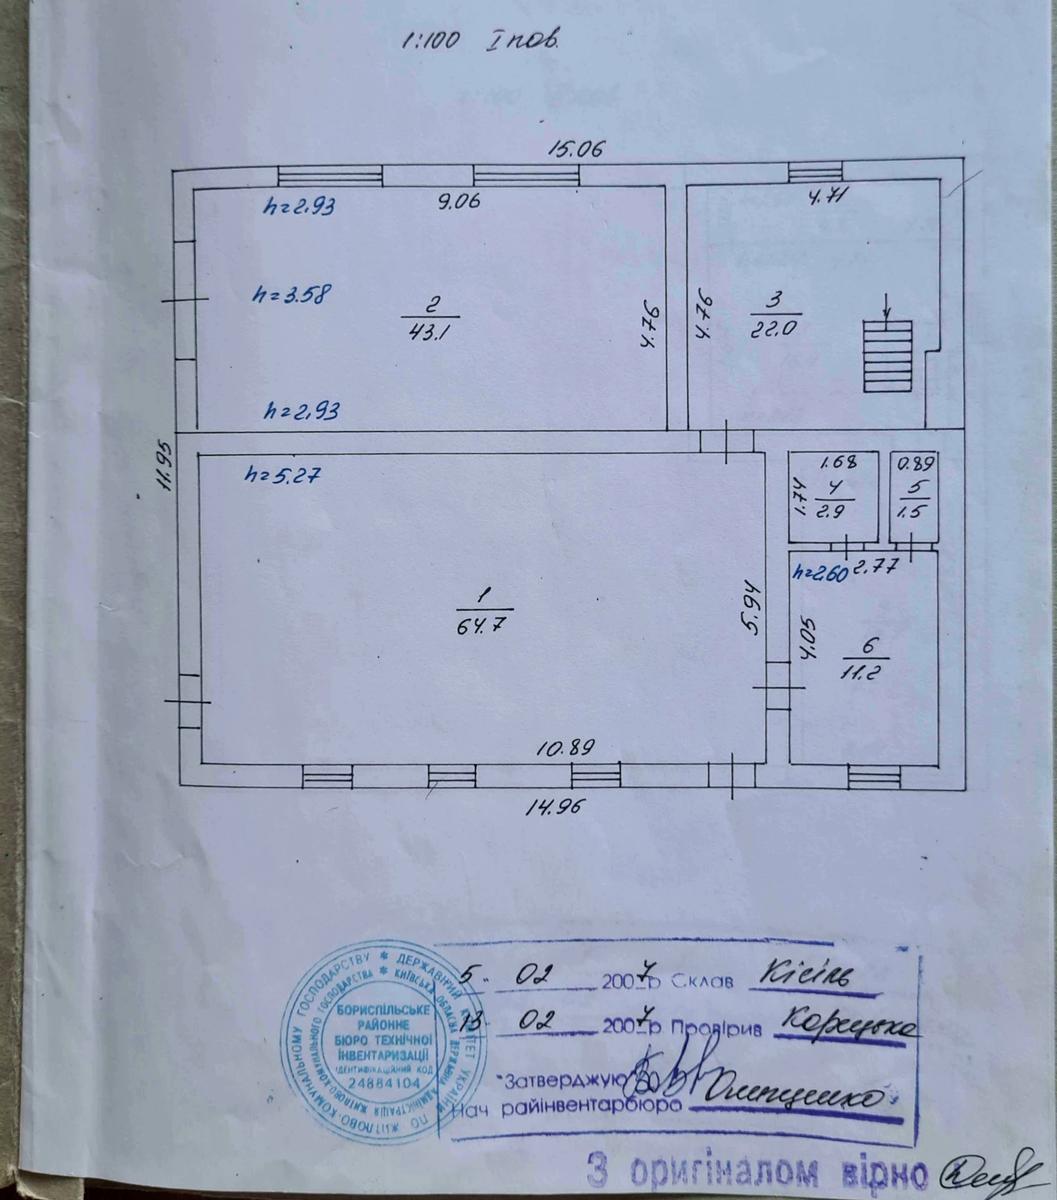 1:100 I пов.
15.06
h=2.93
9.06
4.71
h=3.58
2
43.1
4.76
4.76
3
22.0
h=2.93
11.95
h=5.27
1.68
0.89
1.74
4
2.9
5
1.5
h=2.60
2.77
1
64.7
5.94
4.05
6
11.2
10.89
14.96
5. 02 2007р Склав Кісіль
13 02 2007р Провірив Корецька
"Затверджую"
Нач райінвентарбюро
БОРИСПІЛЬСЬКЕ
РАЙОННЕ
БЮРО ТЕХНІЧНОЇ
ІНВЕНТАРИЗАЦІЇ
ІДЕНТИФІКАЦІЙНИЙ КОД
24884104
ДЕРЖАВНИЙ КОМІТЕТ УКРАЇНИ ПО ЖИТЛОВО-КОМУНАЛЬНОМУ ГОСПОДАРСТВУ
КИЇВСЬКА ОБЛАСНА ДЕРЖАВНА АДМІНІСТРАЦІЯ ЖИТЛОВО-КОМУНАЛЬНОГО ГОСПОДАРСТВА
З оригіналом вірно